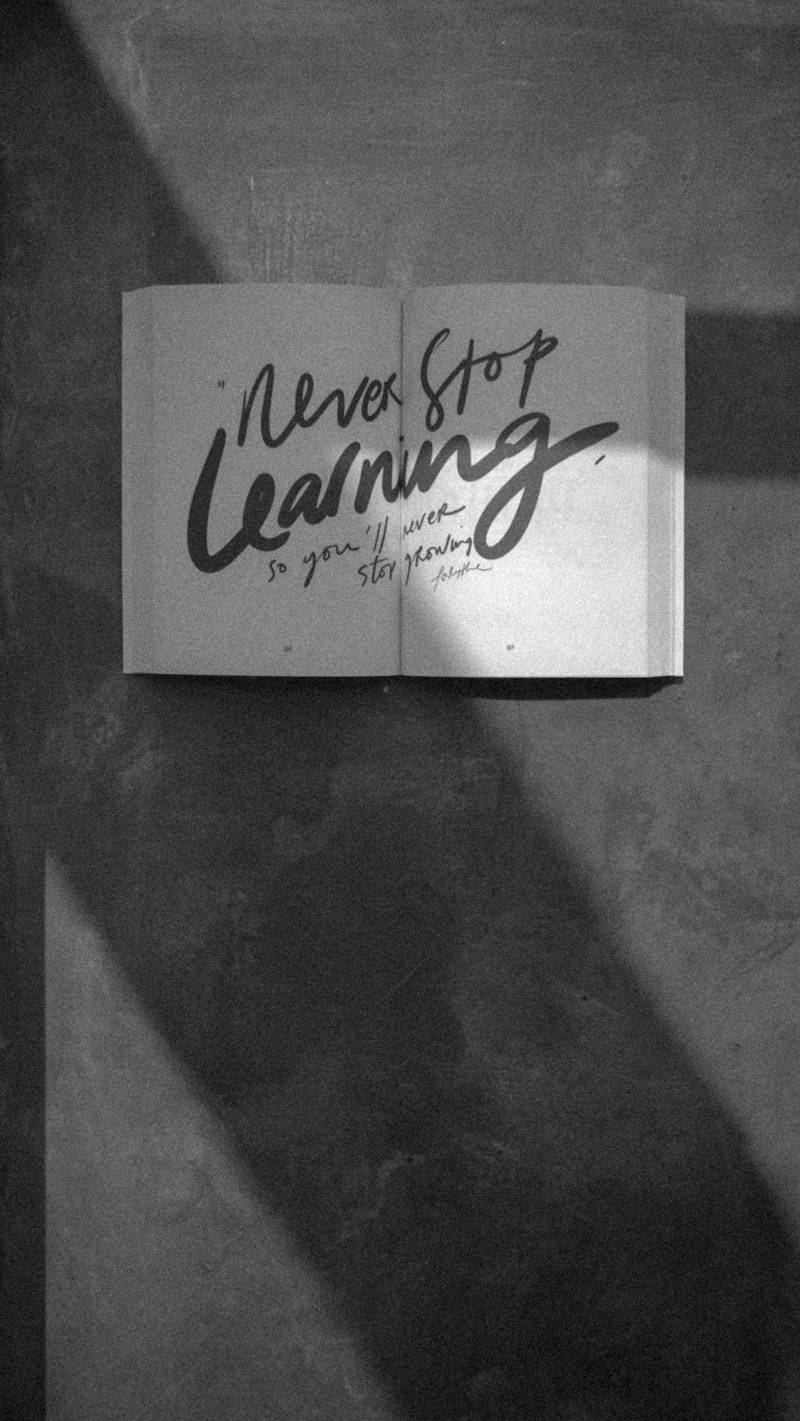 "never Stop
Learning,
so you'll never
stop growing